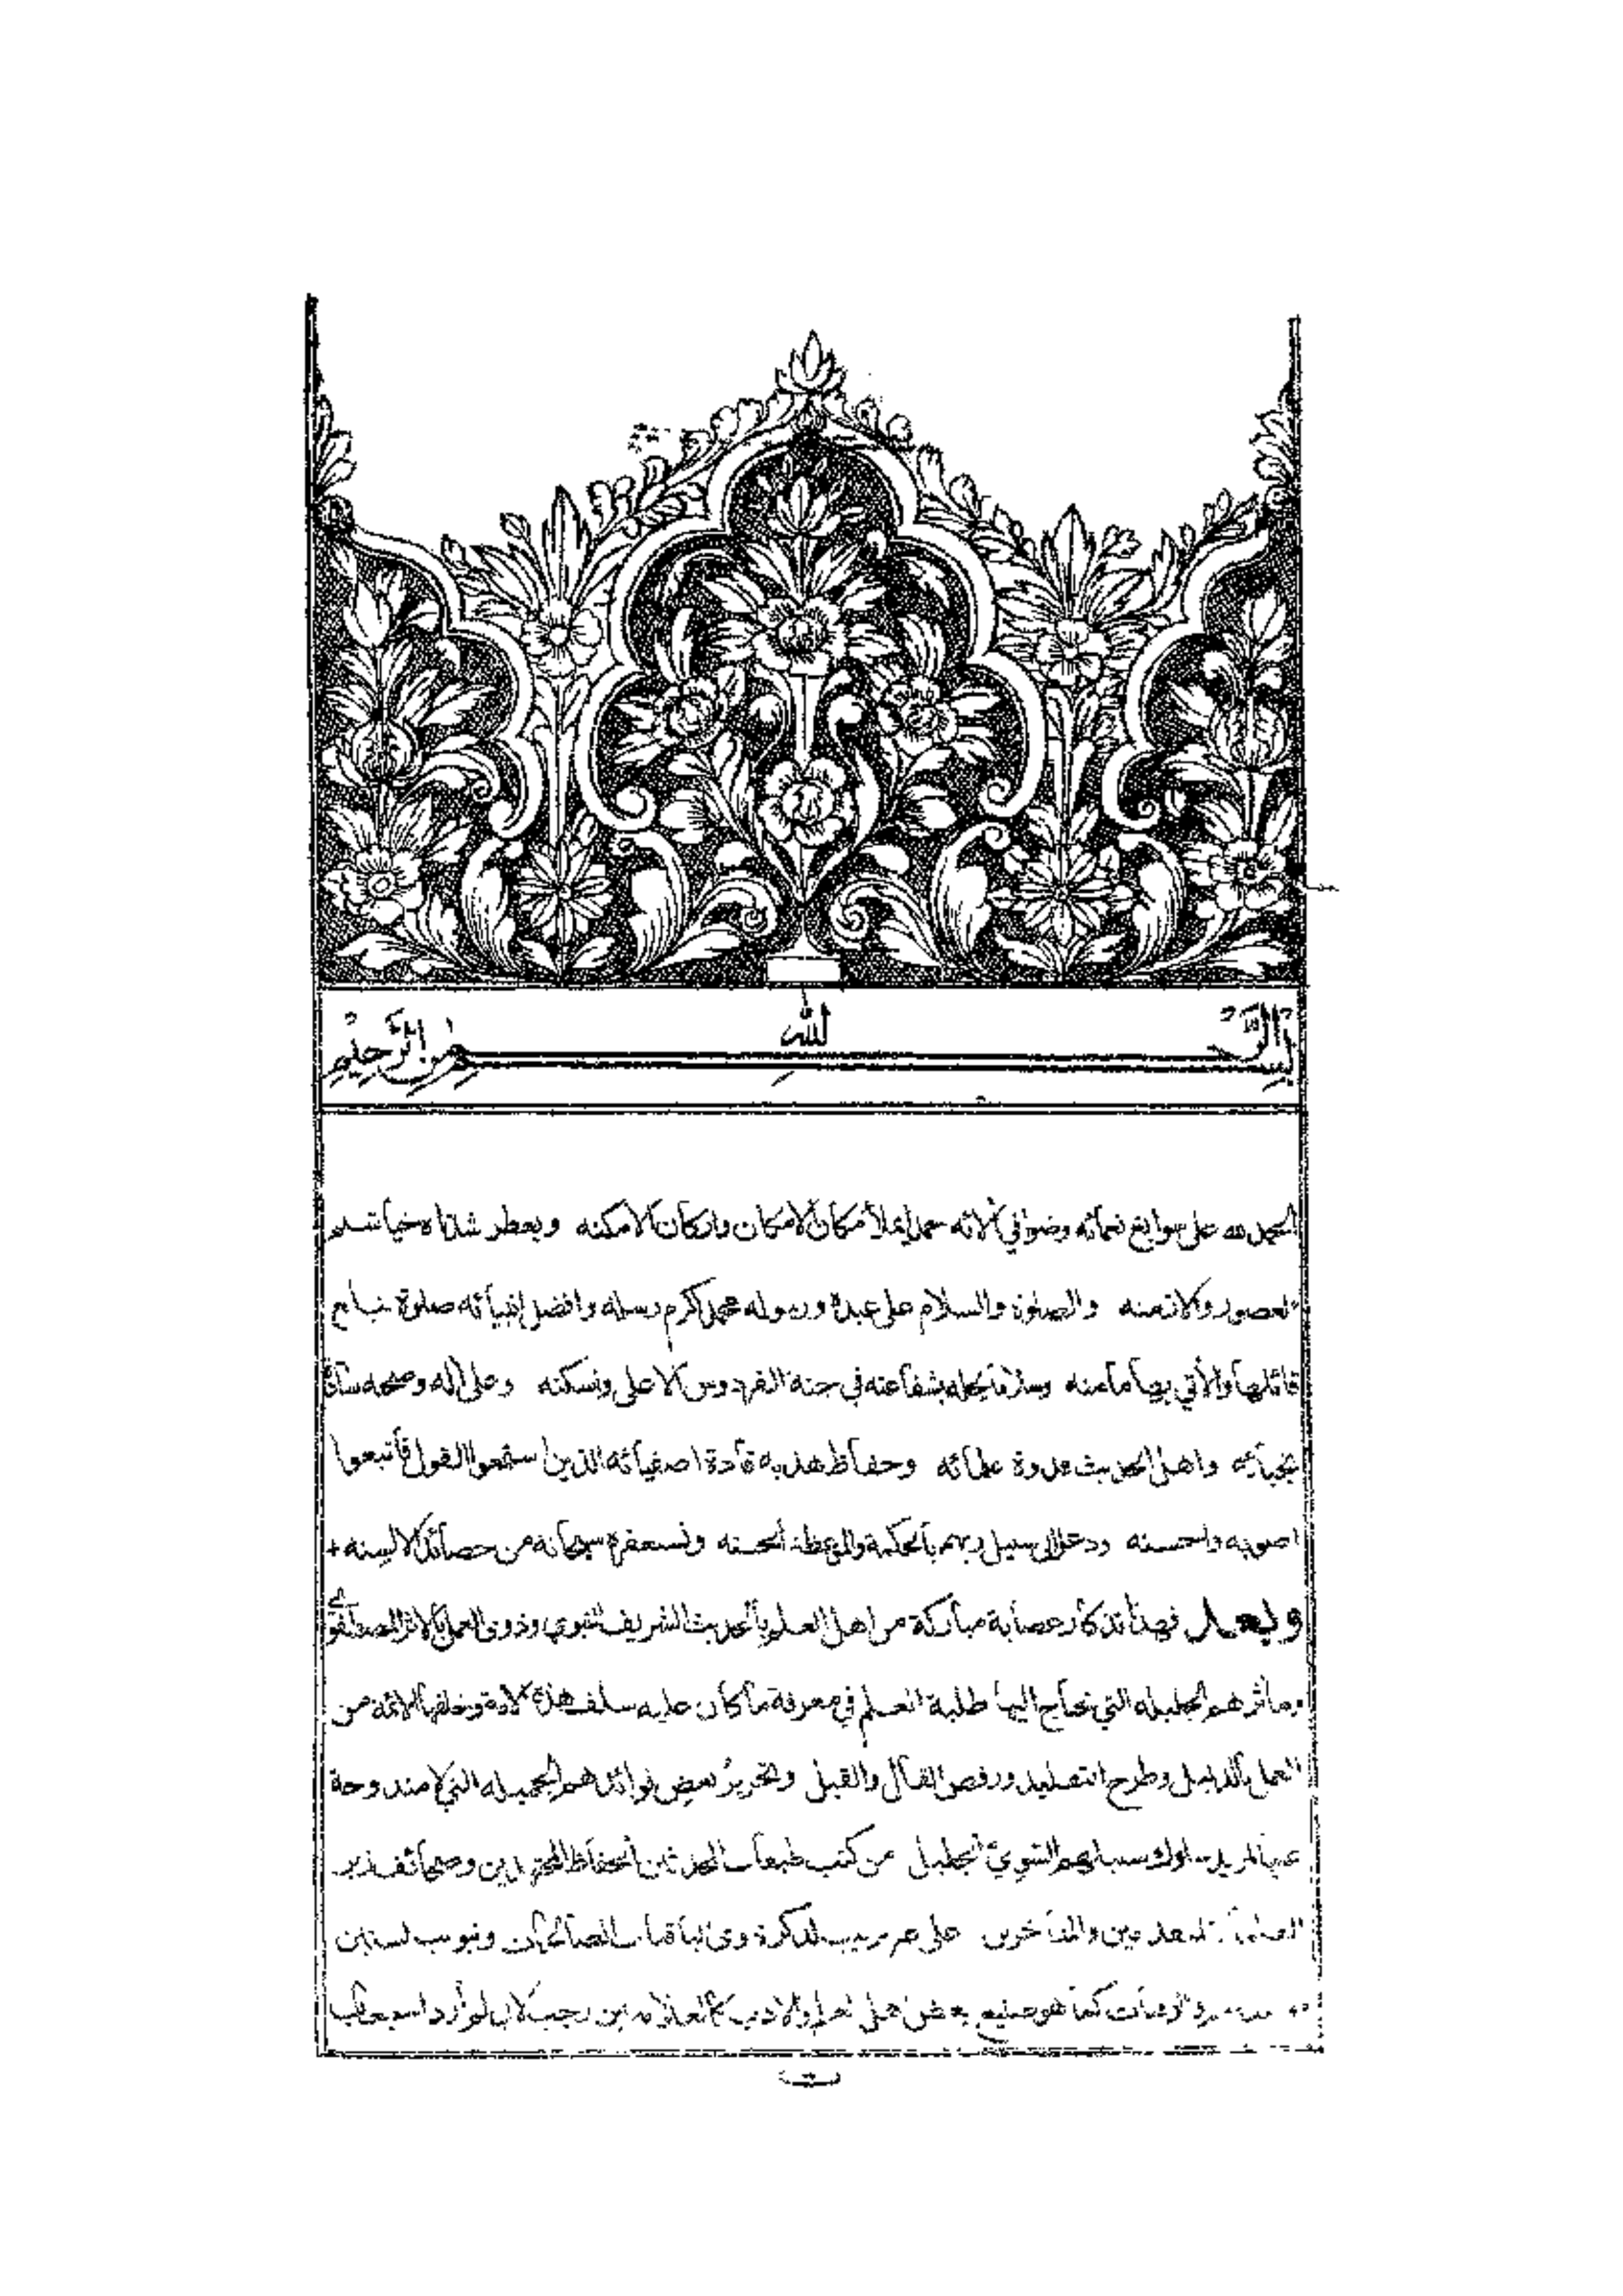 بسم الله الرحمن الرحيم
الحمد لله على سوابغ نعمائه وضوافي آلائه حمدا يملأ مكان الامكان واركان الامكنه ويعطر شذاه خياشيم
العصور والازمنه والصلوة والسلام على عبده ورسوله محمد اكرم رسله وافضل انبيائه صلوة تبلغ
قائلها والآتي بها مامنه وسلاما يحله بشفاعته في جنة الفردوس الاعلى وتسكنه وعلى آله وصحبه سادة
نجبائه واهل الحديث قدوة علمائه وحفاظ هديه قادة اصفيائه الذين استمعوا القول فاتبعوا
اصوبه واحسنه ودعوا الى سبيل ربهم بالحكمة والموعظة الحسنه ونستغفره سبحانه من حصائد الالسنه +
وبعد فهذا تذكار عصابة مباركة من اهل العلم بالحديث الشريف النبوي وذوى العمل بالاثر المصطفوي
ومآثرهم الجليله التي تحتاج اليها طلبة العلم في معرفة ما كان عليه سلف هذه الامة وخلفها الائمة من
العمل بالدليل وطرح التقليد ورفض القال والقيل وتحرير بعض فوائدهم الجميله التي لا مندوحة
عنها لمريد سلوك سبيلهم السوي الجليل من كتب طبقات المحدثين الحفاظ المجتهدين وصحائف زبر
العلماء المتقدمين والمتأخرين على غير ترتيب لذكرة ذوى الباقيات الصالحات وتبويب لسنين
كما هو صنيع بعض اهل العلم والادب كالعلامة بن رجب لاني لم أرد استيعاب